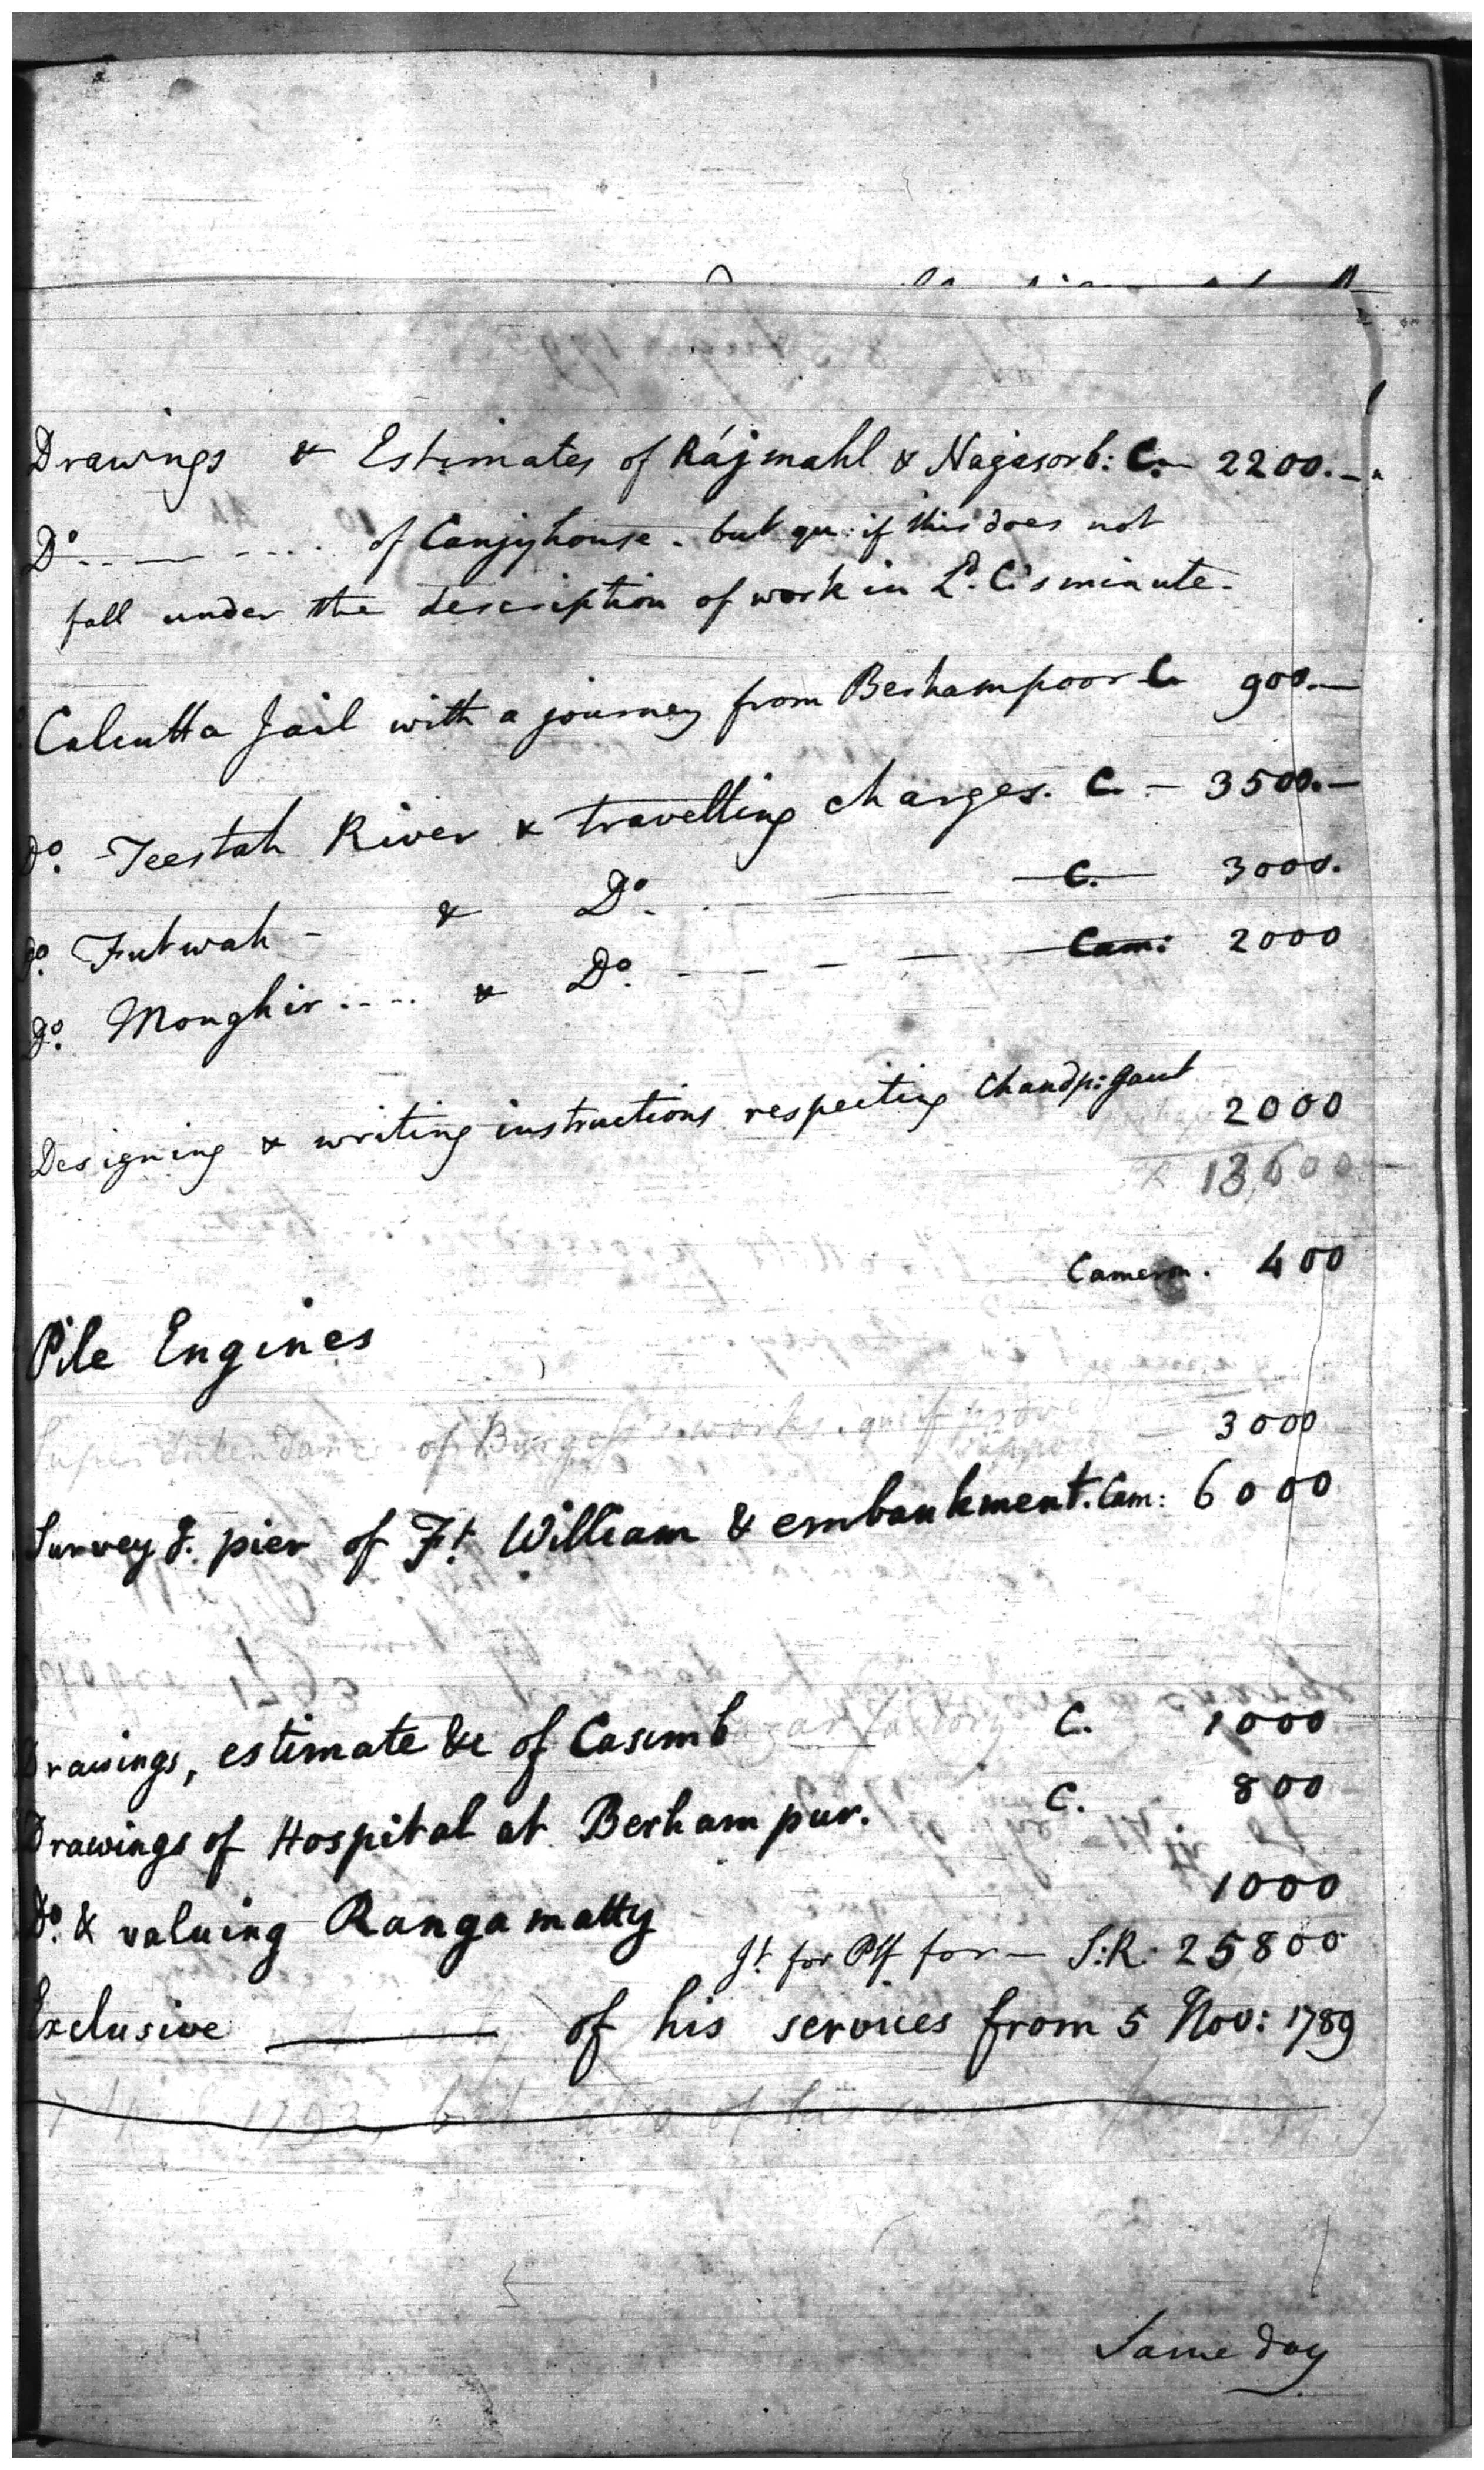 Drawings & Estimates of Rájmahl & Nagasorb: C. - 2200. -
Do. - - - - of Canjyhouse - but qu: if this does not
fall under the description of work in Ld. C's minute.
Calcutta Jail with a journey from Berhampoor C 900. -
Do. Teestah River & travelling charges. C. - 3500. -
Do. Futwah - & Do. - - C. 3000.
Do. Monghir .... & Do. - - - - Cam: 2000
Designing & writing instructions respecting Chandp: Gaut
2000
13,600
Cameron. 400
Pile Engines
Superintendance of Burges's works. qu if proved - 3000
Survey &. pier of Ft. William & embankment. Cam: 6000
Drawings, estimate &c of Casimbazar factory C. 1000
Drawings of Hospital at Berhampur. C. 800
Do. & valuing Rangamatty 1000
Jt. for Plf for - S:R. 25800
Exclusive of his services from 5 Nov: 1789
1792, of his
Same day